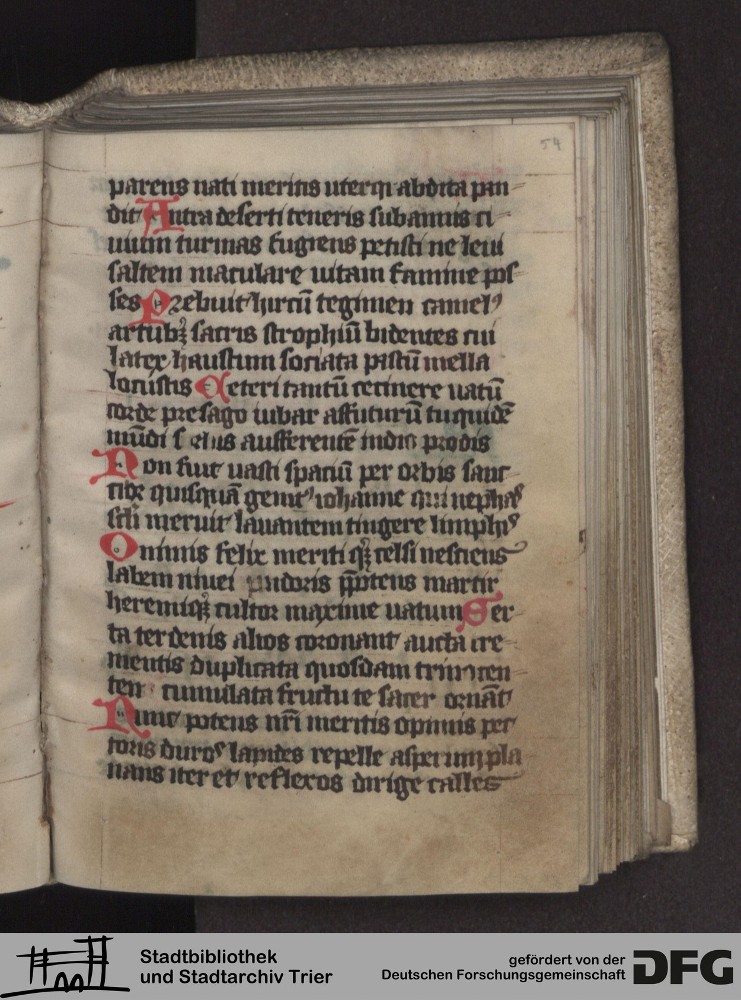 54
parens nati meritis uterqꝫ abdita pan-
dit Antra deserti teneris sub annis ci-
uium turmas fugiens petisti ne leui
saltem maculare uitam famine pos-
ses Prebuit hircū tegimen camelꝰ
artubꝫ sacris strophiū bidentes cui
latex haustum sociata pastū mella
locustis Ceteri tantū cecinere uatū
corde presago iubar affuturū tu quidē
mūdi scelus aufferentē indice prodis
Non fuit uasti spaciū per orbis sanc-
tior quisquā genitꝰ iohanne qui nephaˢ
scli meruit lauantem tingere limphiˢ
O nimis felix meriti qꝫ celsi nesciens
labem niuei pudoris p̄potens martir
heremiqꝫ cultor maxime uatum Ser-
ta ter denis alios coronant aucta cre-
mentis duplicata quosdam trina cen-
ten cumulata fructu te sacer ornāt
Nunc potens nr̄i meritis opimis pec-
toris duroˢ lapides repelle asperum pla-
nans iter et reflexos dirige calles
Stadtbibliothek
und Stadtarchiv Trier
gefördert von der
Deutschen Forschungsgemeinschaft
DFG